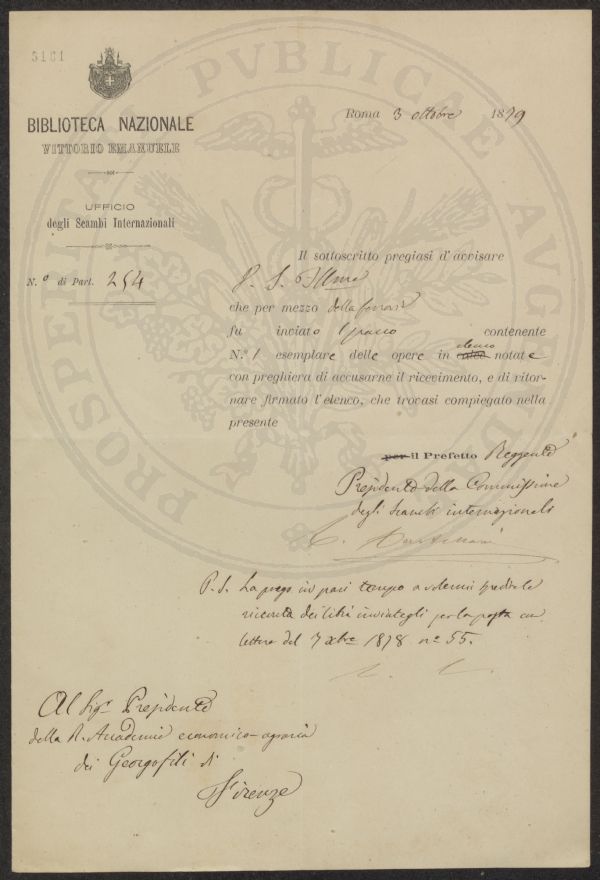 5161
BIBLIOTECA NAZIONALE
VITTORIO EMANUELE
UFFICIO
degli Scambi Internazionali
N.º di Part. 254
Roma 3 ottobre 1879
Il sottoscritto pregiasi d'avvisare
V. S. Illma
che per mezzo della ferrovia
fu inviato 1 pacco contenente
N.º 1 esemplare delle opere in elenco notate
con preghiera di accusarne il ricevimento, e di ritor-
nare firmato l'elenco, che trovasi compiegato nella
presente
per il Prefetto Reggente
Presidente della Commissione
degli scambi internazionali
P. S. La prego in pari tempo a volermi spedire la
ricevuta dei libri inviategli per la posta con
lettera del 7 xbre 1878 nº 55.
Al Sigr Presidente
della R. Accademia economico-agraria
dei Georgofili di
Firenze
PROSPERITA PVBLICAE AVG DA